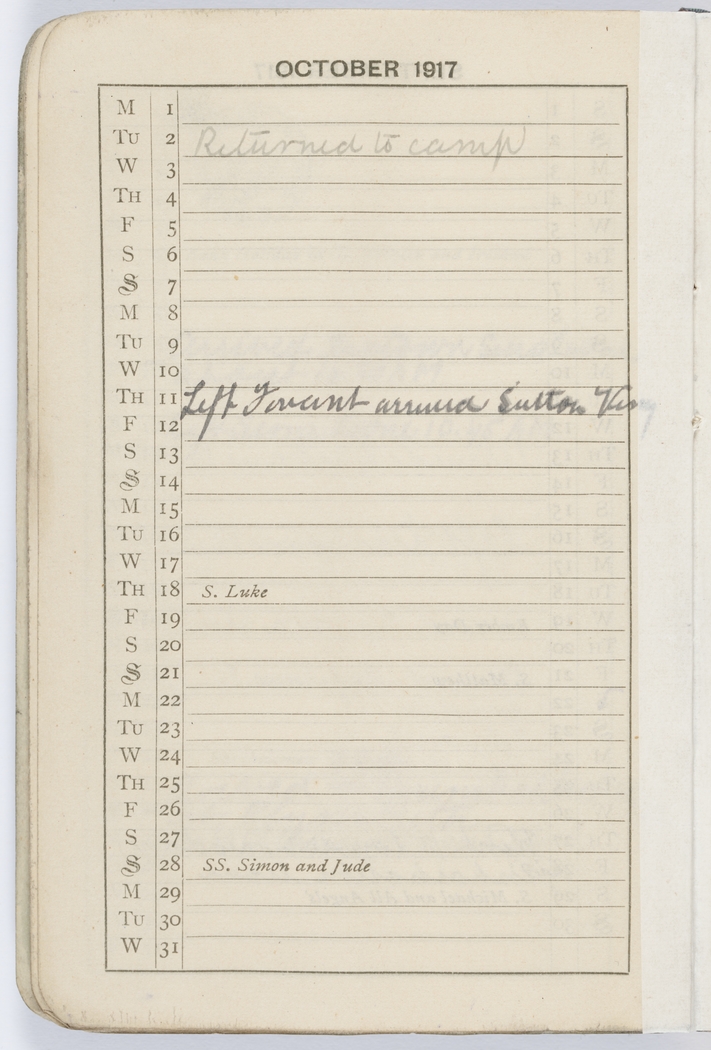 OCTOBER 1917
M 1
TU 2 Returned to camp
W 3
TH 4
F 5
S 6
S 7
M 8
TU 9
W 10
TH 11 Left Fovant arrived Sutton Veny
F 12
S 13
S 14
M 15
TU 16
W 17
TH 18 S. Luke
F 19
S 20
S 21
M 22
TU 23
W 24
TH 25
F 26
S 27
S 28 SS. Simon and Jude
M 29
TU 30
W 31